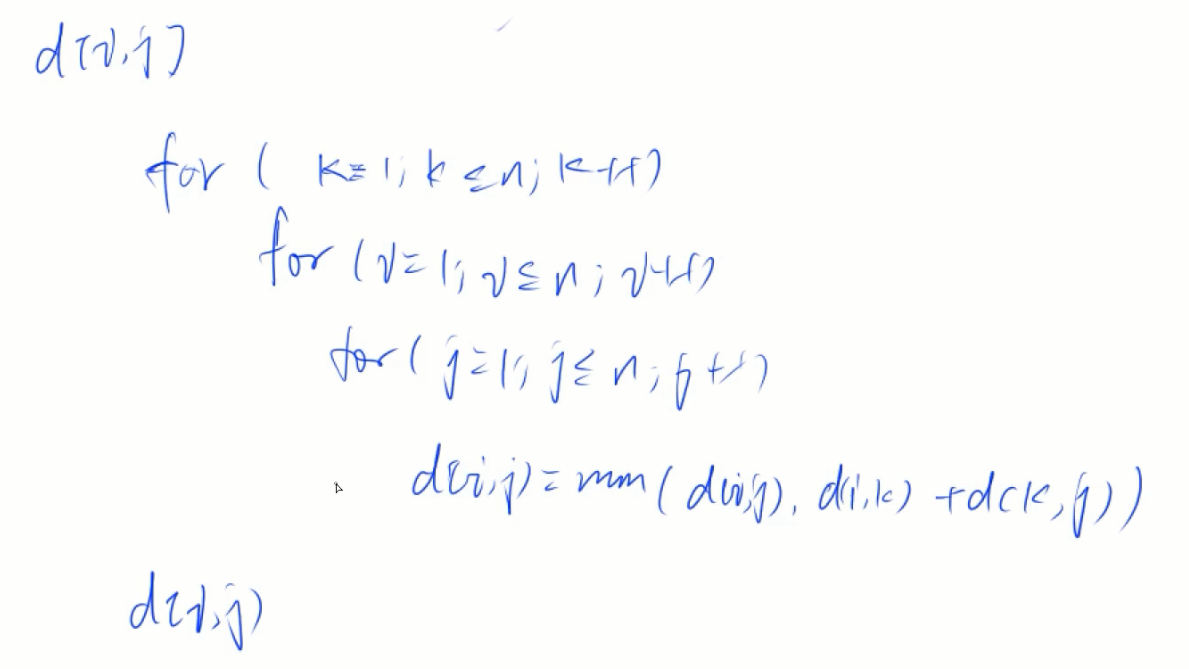 d[i,j]
for ( k=1; k≤n; k++)
for (i=1; i≤n; i++)
for( j=1; j≤n; j++)
d(i,j)=min( d(i,j), d(i,k) +d(k,j))
d[i,j)